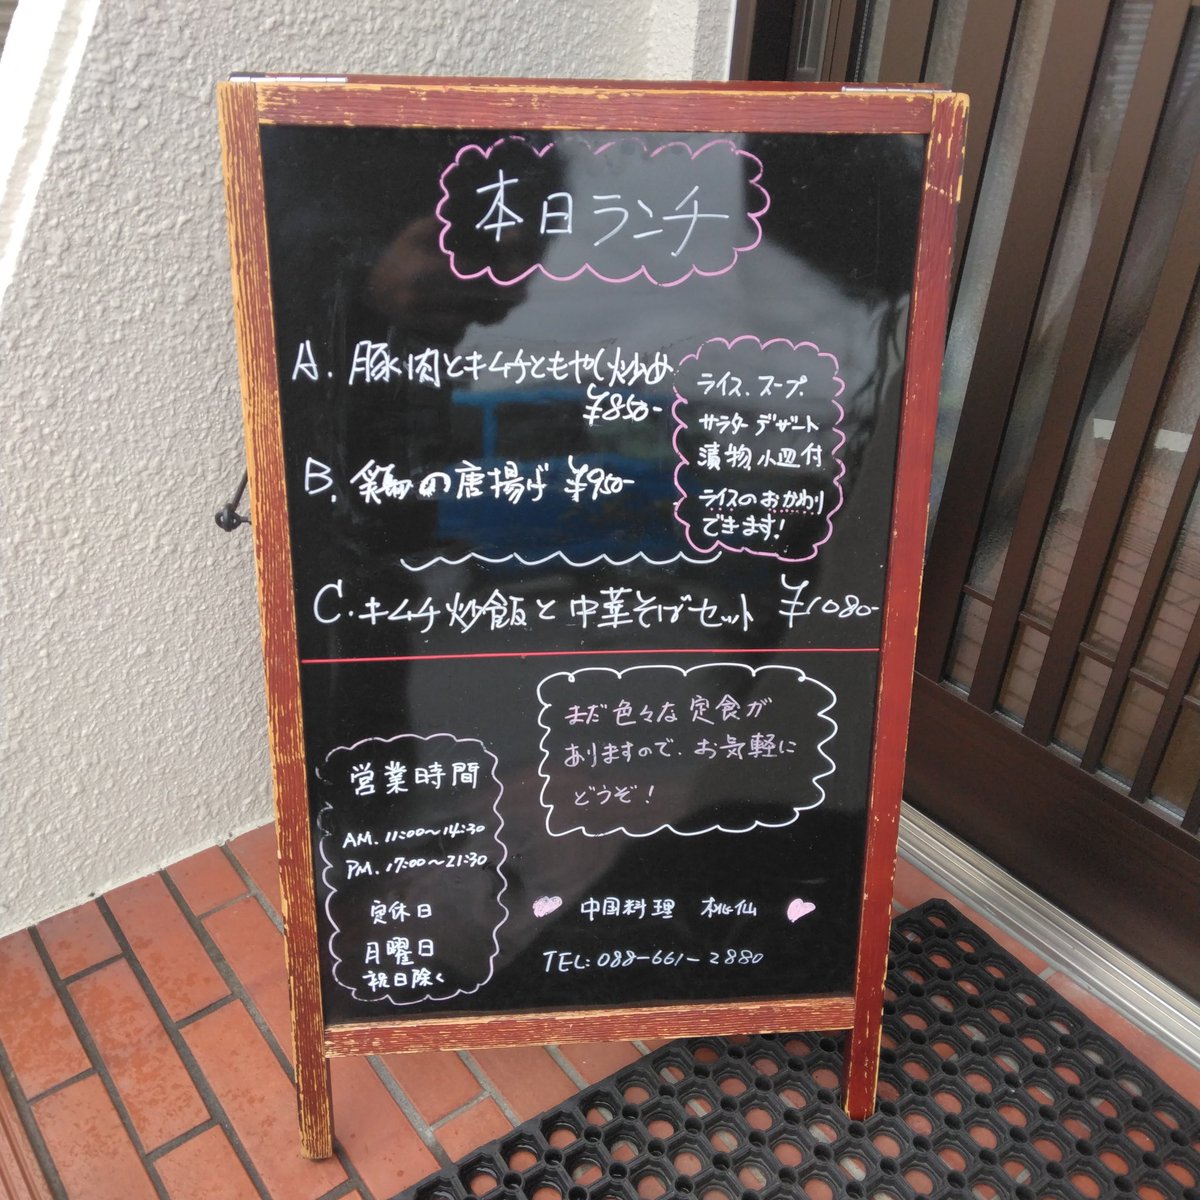 本日ランチ
A. 豚肉とキムチともやし炒め
¥850-
ライス、スープ、
サラダ デザート
漬物小皿付
ライスのおかわり
できます!
B. 鶏の唐揚げ ¥950-
C. キムチ炒飯と中華そばセット ¥1080-
まだ色々な定食が
ありますので、お気軽に
どうぞ!
営業時間
AM. 11:00~14:30
PM. 17:00~21:30
定休日
月曜日
祝日除く
中国料理 桃仙
TEL: 088-661-2880